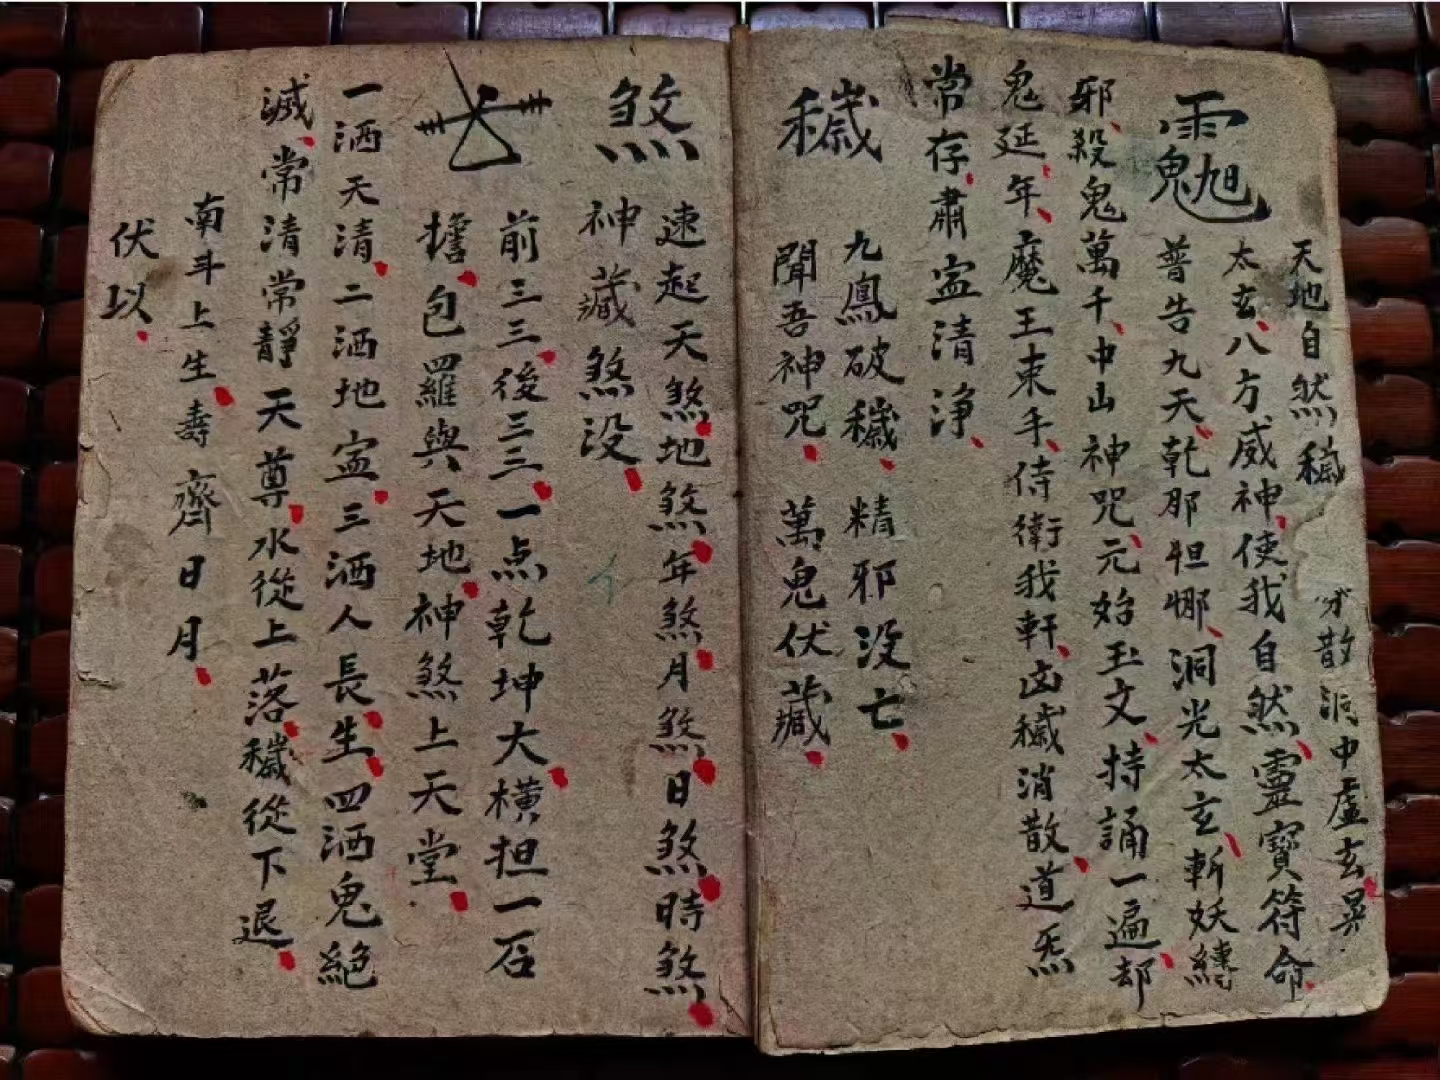 天地自然穢 分散洞中虛玄晃
太玄、八方威神、使我自然、靈寶符命、
普告九天、乾那怛哪、洞光太玄、斬妖縛
邪、殺鬼萬千、中山神咒、元始玉文、持誦一遍、却
鬼延、年、魔王束手、侍衛我軒、凶穢消散、道炁
常存、肅寍清淨、
穢
九鳳破穢、精邪没亡、
聞吾神咒、萬鬼伏藏、
煞
速起天煞、地煞、年煞、月煞、日煞、時煞、
神藏煞没、
前三三、後三三、一点乾坤大、橫担一石
擔、包羅與天地、神煞上天堂、
一洒天清、二洒地寍、三洒人長、生、四洒鬼絕
滅、常清常靜天尊、水從上落、穢從下退、
南斗上生、壽齊日月、
伏以、